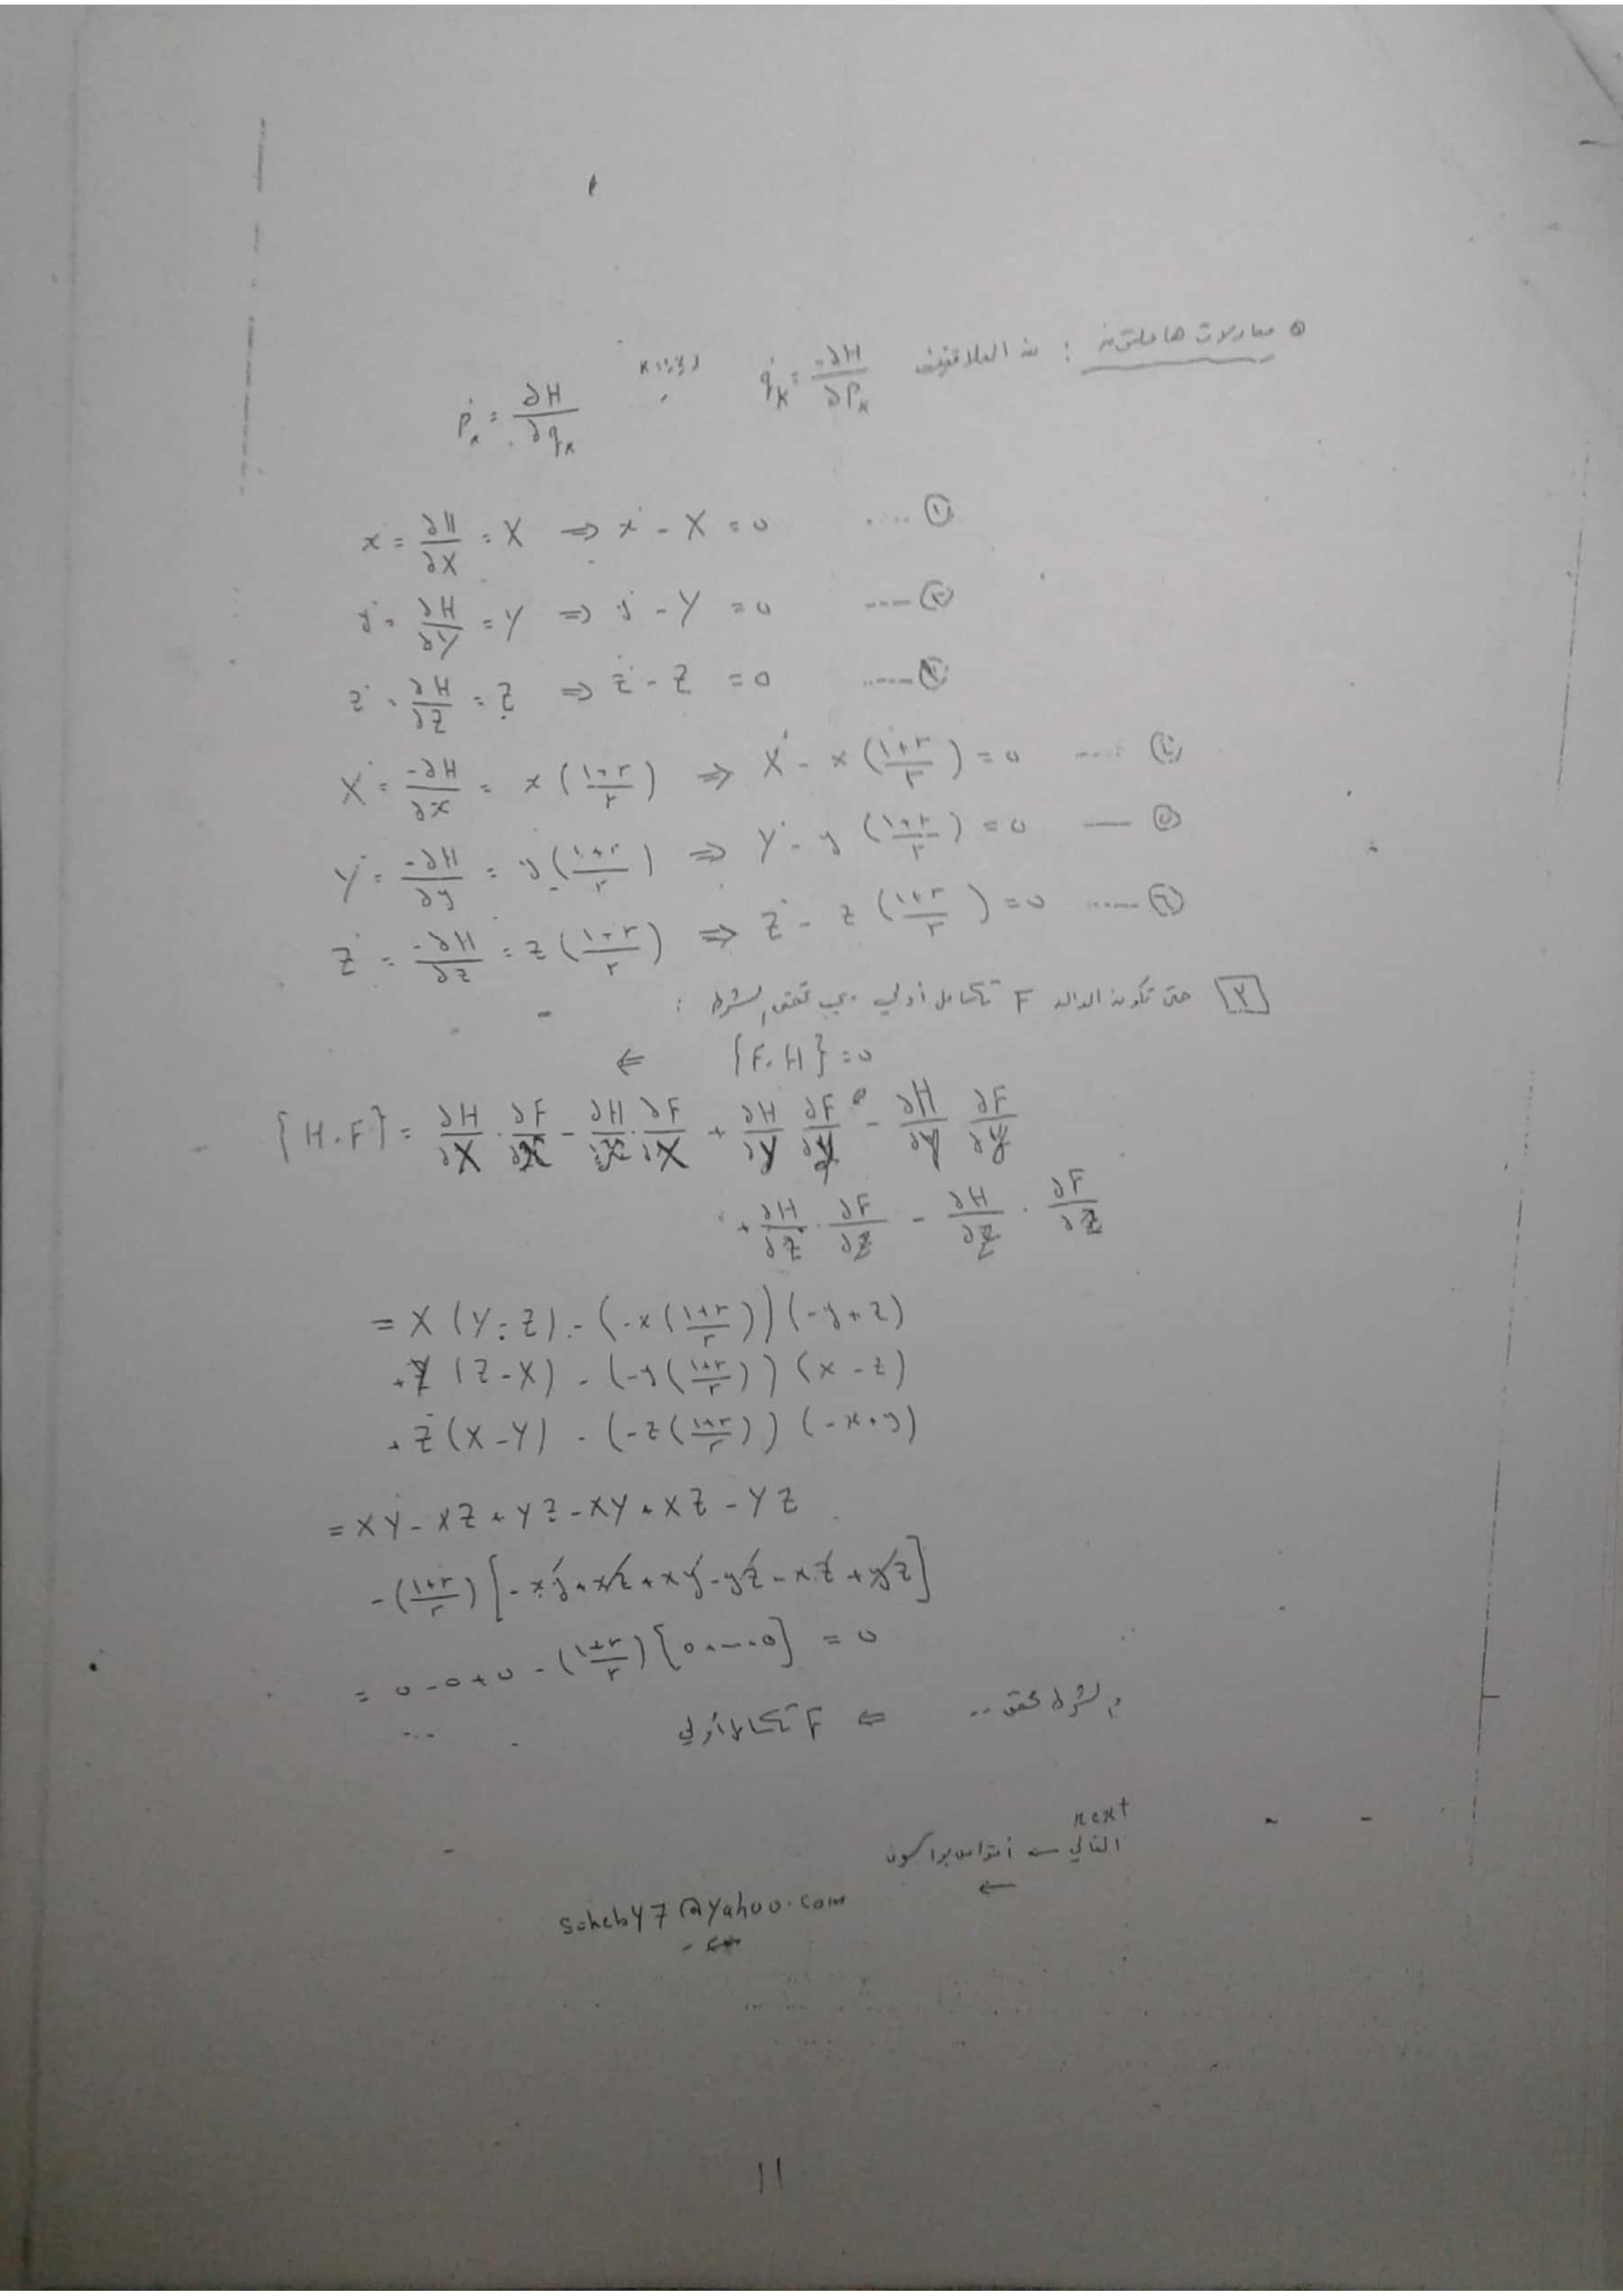 معادلات هاملتون : من العلاقتين q̇ₖ = -∂H/∂Pₖ
ṗₖ = ∂H/∂qₖ
ẋ = ∂H/∂X = X ⇒ ẋ - X = 0 .... ①
ẏ = ∂H/∂Y = Y ⇒ ẏ - Y = 0 ---- ②
ż = ∂H/∂Z = Z ⇒ ż - Z = 0 ..... ③
Ẋ = -∂H/∂x = x(1+r/r) ⇒ Ẋ - x(1+r/r) = 0 .... ④
Ẏ = -∂H/∂y = y(1+r/r) ⇒ Ẏ - y(1+r/r) = 0 — ⑤
Ż = -∂H/∂z = z(1+r/r) ⇒ Ż - z(1+r/r) = 0 ..... ⑥
[٢] حتى تكون الداله F تكامل أولي يجب تحقق الشرط :
{F.H} = 0 ⇐
{H.F} = ∂H/∂X · ∂F/∂x - ∂H/∂x · ∂F/∂X + ∂H/∂Y ∂F/∂y - ∂H/∂y ∂F/∂Y
+ ∂H/∂Z · ∂F/∂z - ∂H/∂z · ∂F/∂Z
= X(Y-Z) - (-x(1+r/r))(-y+z)
+ Y(Z-X) - (-y(1+r/r))(x-z)
+ Z(X-Y) - (-z(1+r/r))(-x+y)
= XY - XZ + YZ - XY + XZ - YZ
-(1+r/r)[-xy + xz + xy - yz - xz + yz]
= 0-0+0 - (1+r/r)[0+--+0] = 0
الشرط محقق .. ⇐ F تكامل أولي
next
التالي ← أقواس بواسون
soheb47@yahoo.com
11